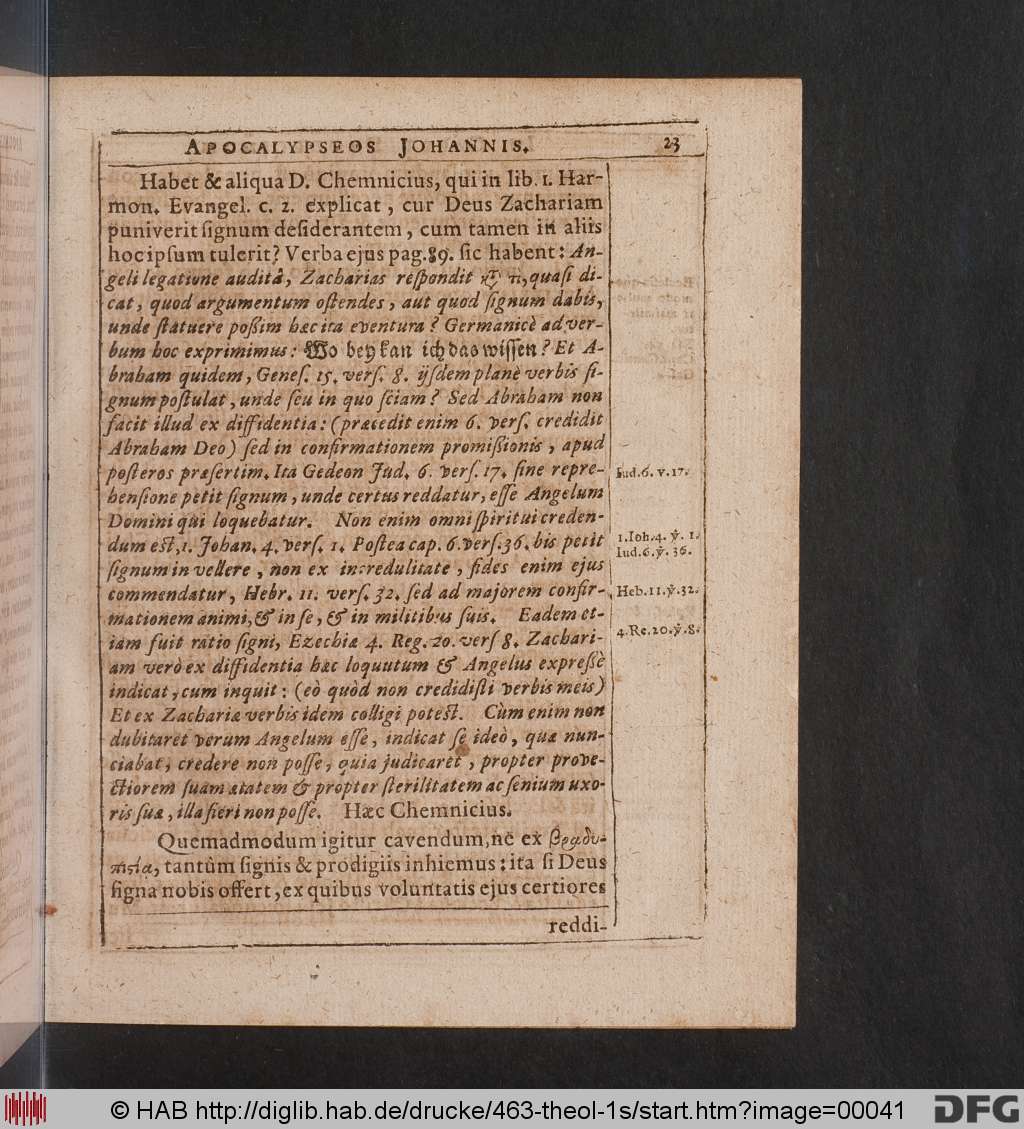 APOCALYPSEOS JOHANNIS. 23
Habet & aliqua D. Chemnicius, qui in lib. 1. Har-
mon. Evangel. c. 2. explicat, cur Deus Zachariam
puniverit ſignum deſiderantem, cum tamen in aliis
hoc ipſum tulerit? Verba ejus pag. 89. ſic habent: An-
geli legatione auditâ, Zacharias reſpondit κατὰ τί, quaſi di-
cat, quod argumentum oſtendes, aut quod ſignum dabis,
unde ſtatuere poßim hæc ita eventura? Germanicè ad ver-
bum hoc exprimimus: Wo bey kan ich das wiſſen? Et A-
braham quidem, Geneſ. 15. verſ. 8. ijſdem planè verbis ſi-
gnum poſtulat, unde ſeu in quo ſciam? Sed Abraham non
facit illud ex diffidentia: (præcedit enim 6. verſ. credidit
Abraham Deo) ſed in confirmationem promißionis, apud
poſteros præſertim. Ita Gedeon Jud. 6. verſ. 17. ſine repre-
henſione petit ſignum, unde certus reddatur, eſſe Angelum
Domini qui loquebatur. Non enim omni ſpiritui creden-
dum eſt, 1. Johan. 4. verſ. 1. Poſtea cap. 6. verſ. 36. bis petit
ſignum in vellere, non ex incredulitate, fides enim ejus
commendatur, Hebr. 11. verſ. 32. ſed ad majorem confir-
mationem animi, & in ſe, & in militibus ſuis. Eadem et-
iam fuit ratio ſigni, Ezechiæ 4. Reg. 20. verſ 8. Zachari-
am verò ex diffidentia hæc loquutum & Angelus expreßè
indicat, cum inquit: (eò quòd non credidiſti verbis meis)
Et ex Zachariæ verbis idem colligi poteſt. Cùm enim non
dubitaret verum Angelum eſſe, indicat ſe ideò, quæ nun-
ciabat, credere non poſſe, quia judicaret, propter prove-
ctiorem ſuam ætatem & propter ſterilitatem ac ſenium uxo-
ris ſuæ, illa fieri non poſſe. Hæc Chemnicius.
Quemadmodum igitur cavendum, ne ex βραδυ-
πιστία, tantùm ſignis & prodigiis inhiemus: ita ſi Deus
ſigna nobis offert, ex quibus voluntatis ejus certiores
reddi-
Iud. 6. v. 17.
1. Ioh. 4. ỳ. 1.
Iud. 6. ỳ. 36.
Heb. 11. ỳ. 32.
4. Re. 20. ỳ. 8.
© HAB http://diglib.hab.de/drucke/463-theol-1s/start.htm?image=00041
DFG